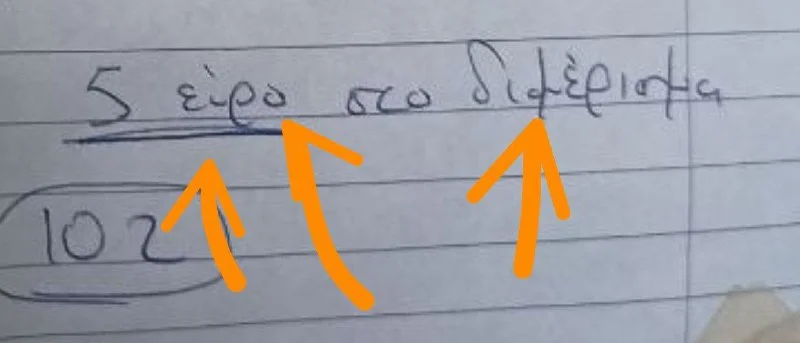 5 είρο στο διμέρισμα
102